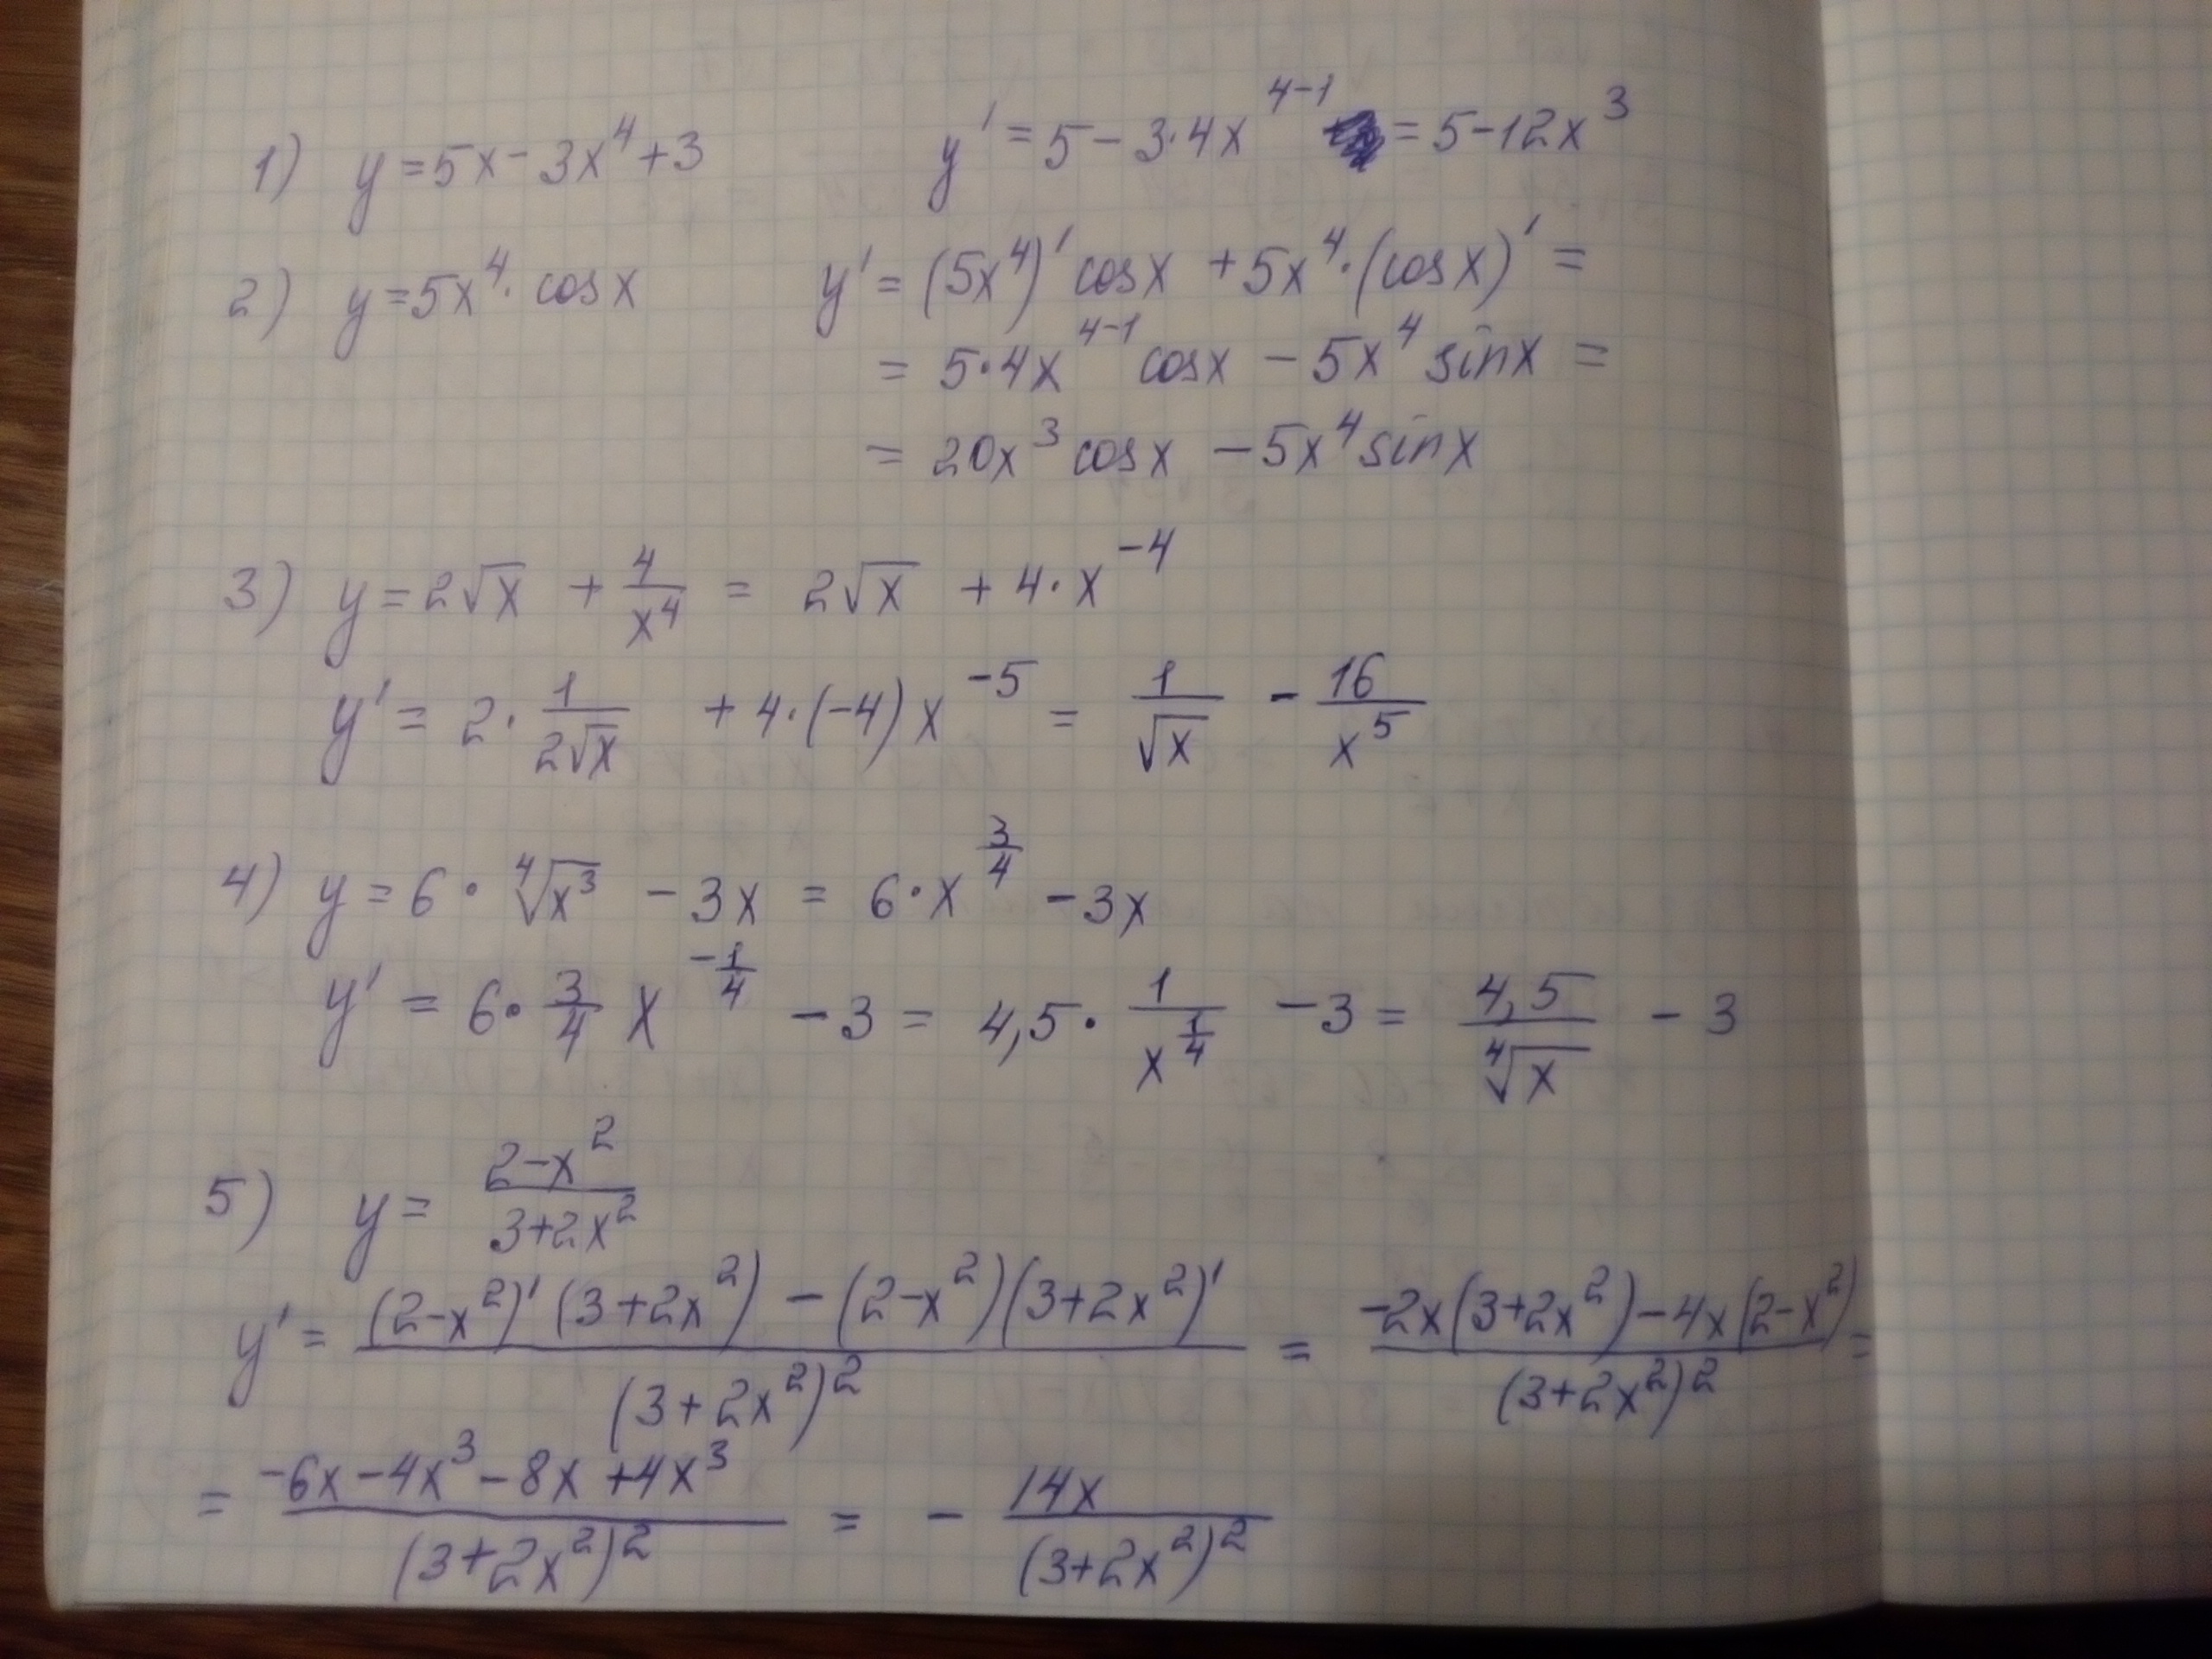 1) y = 5x - 3x⁴ + 3 y' = 5 - 3·4x⁴⁻¹ = 5 - 12x³
2) y = 5x⁴· cos x y' = (5x⁴)' cos x + 5x⁴·(cos x)' =
= 5·4x⁴⁻¹ cos x - 5x⁴ sin x =
= 20x³ cos x - 5x⁴ sin x
3) y = 2√x + 4/x⁴ = 2√x + 4·x⁻⁴
y' = 2·1/(2√x) + 4·(-4)x⁻⁵ = 1/√x - 16/x⁵
4) y = 6·⁴√(x³) - 3x = 6·x^(3/4) - 3x
y' = 6·3/4 x^(-1/4) - 3 = 4,5·1/x^(1/4) - 3 = 4,5/⁴√x - 3
5) y = (2-x²)/(3+2x²)
y' = ((2-x²)'(3+2x²) - (2-x²)(3+2x²)')/(3+2x²)² = (-2x(3+2x²) - 4x(2-x²))/(3+2x²)² =
= (-6x - 4x³ - 8x + 4x³)/(3+2x²)² = - 14x/(3+2x²)²